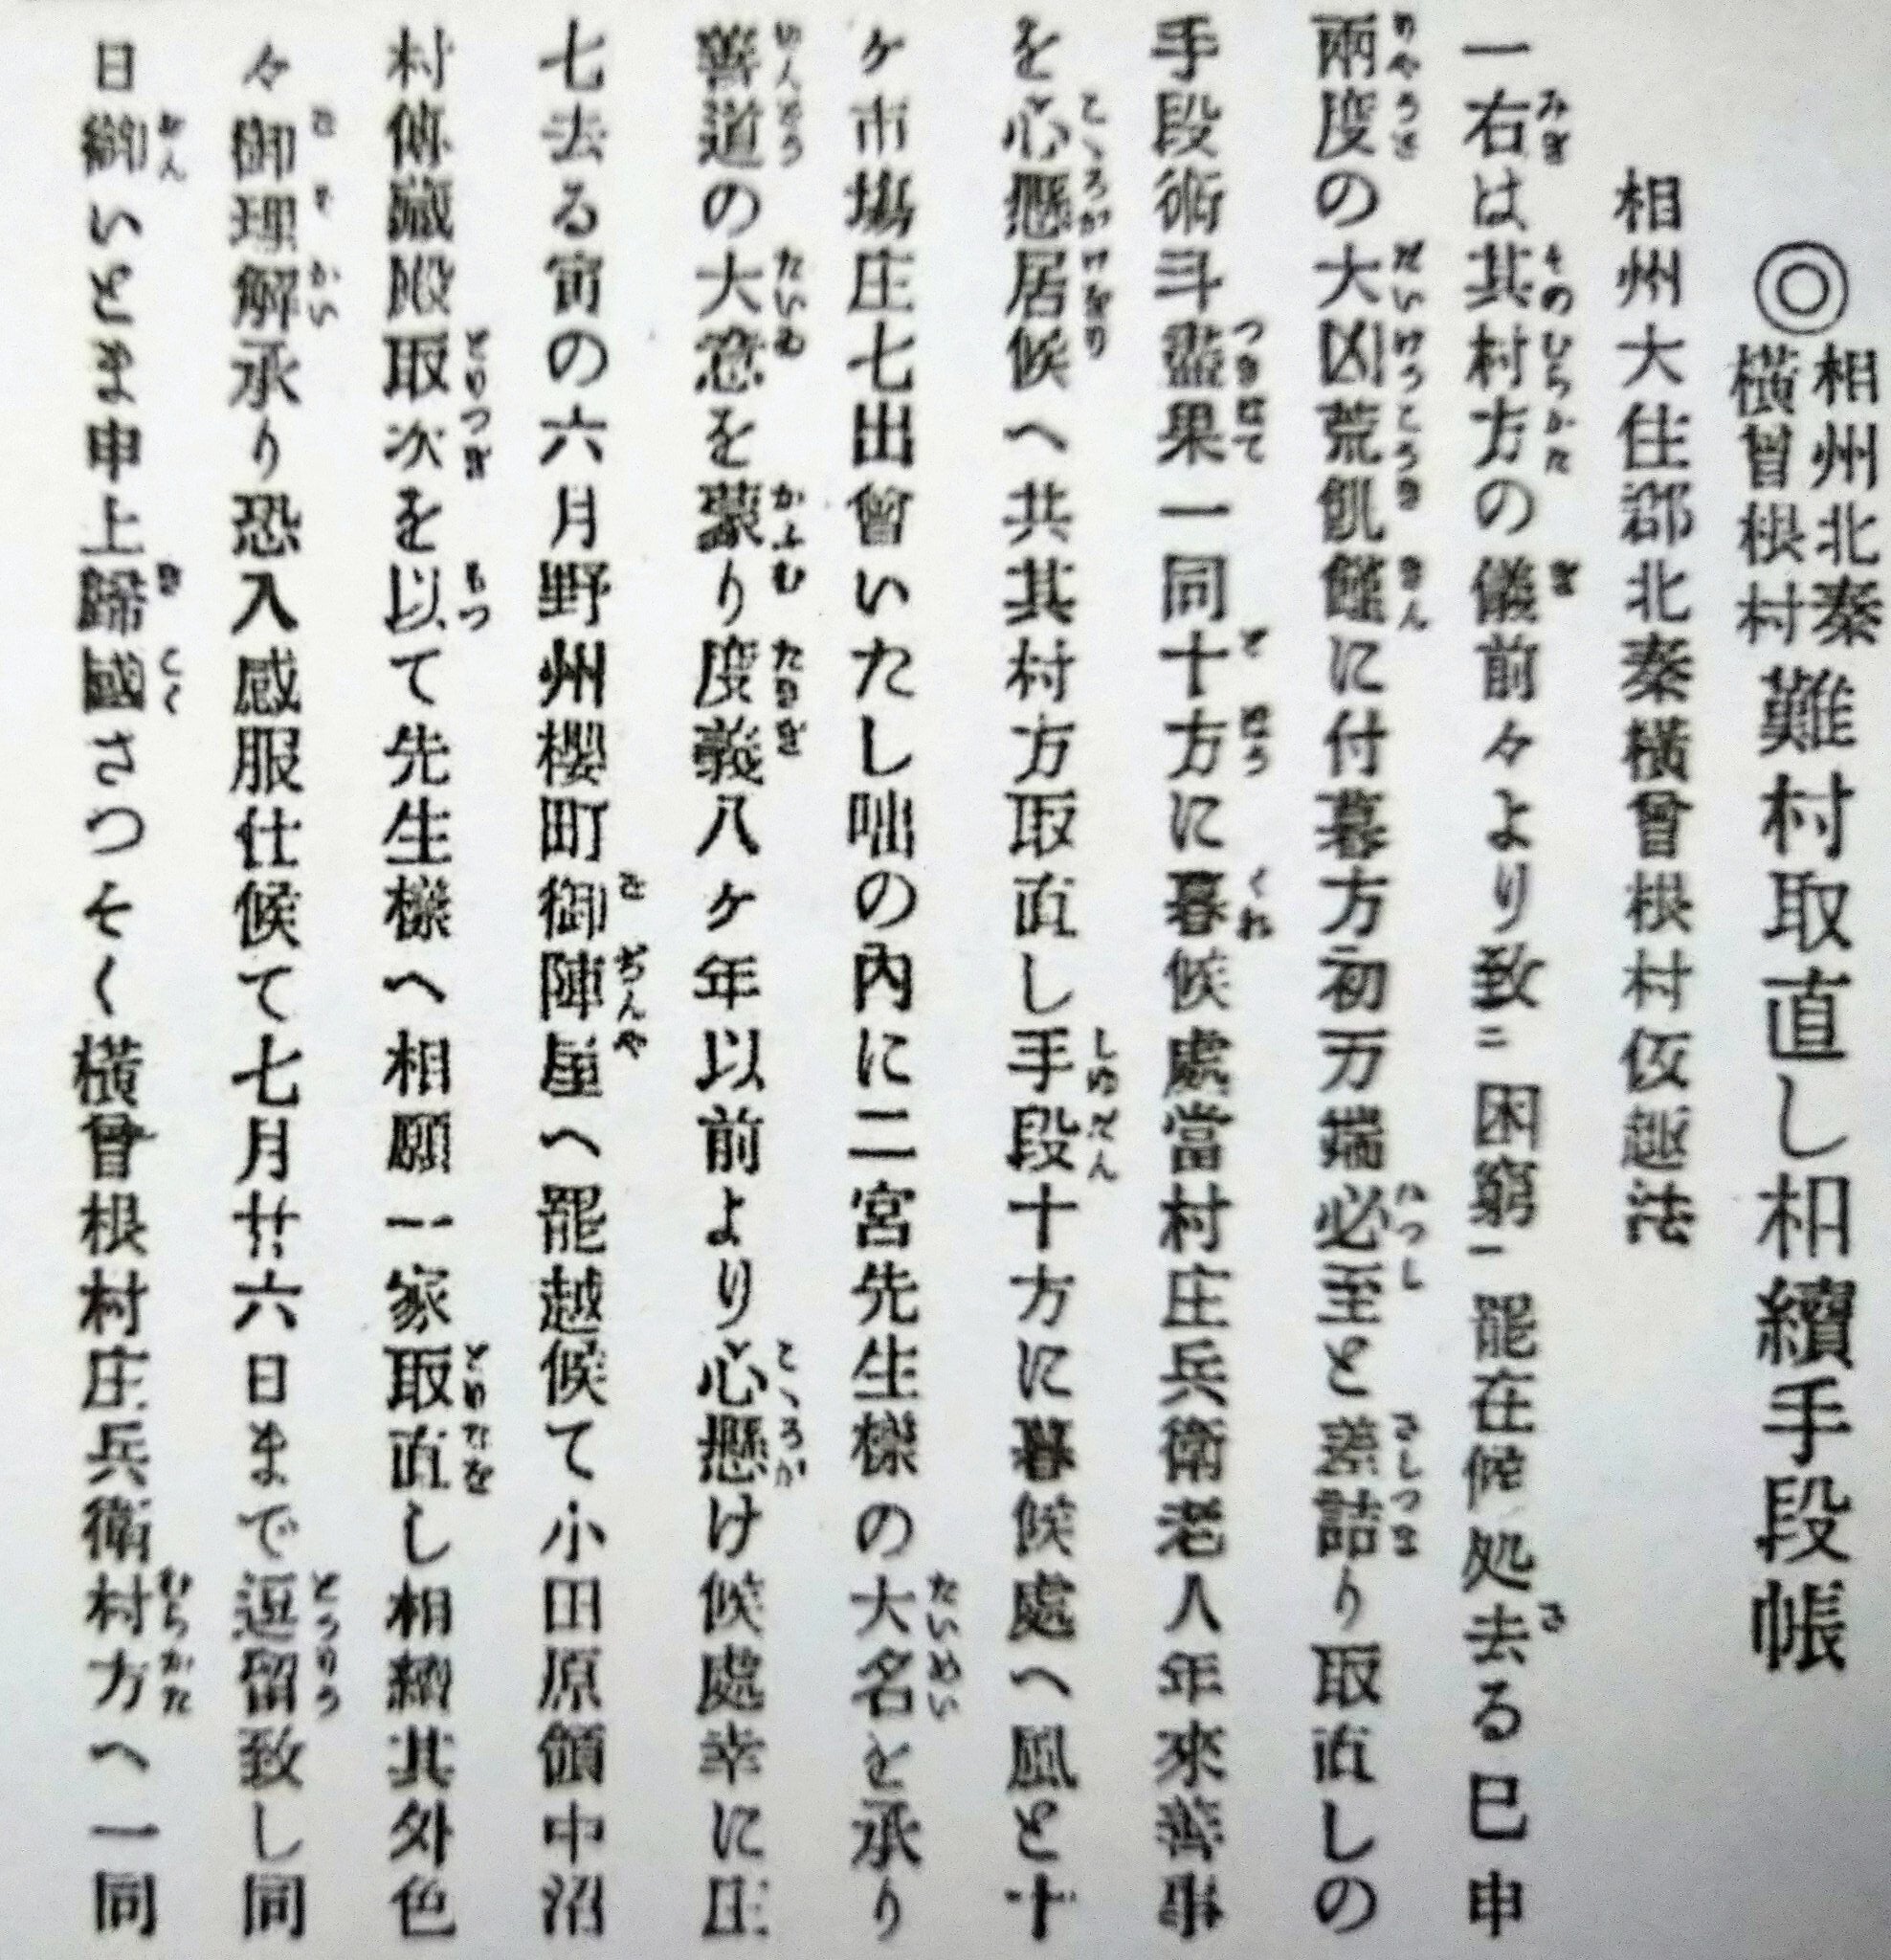 ◎相州北秦横曾根村難村取直し相續手段帳
相州大住郡北秦横曾根村仮趣法
一右は其村方の儀前々より致ニ困窮一罷在候処去る巳申
兩度の大凶荒飢饉に付暮方初万端必至と差詰り取直しの
手段術斗盡果一同十方に暮候處當村庄兵衛老人年來善事
を心懸居候へ共其村方取直し手段十方に暮候處へ風と十
ヶ市塲庄七出會いたし咄の内に二宮先生樣の大名を承り
善道の大意を蒙り度義八ヶ年以前より心懸け候處幸に庄
七去る寅の六月野州櫻町御陣屋へ罷越候て小田原領中沼
村傳藏殿取次を以て先生樣へ相願一家取直し相續其外色
々御理解承り恐入感服仕候て七月廿六日まで逗留致し同
日御いとま申上歸國さつそく横曾根村庄兵衛村方へ一同